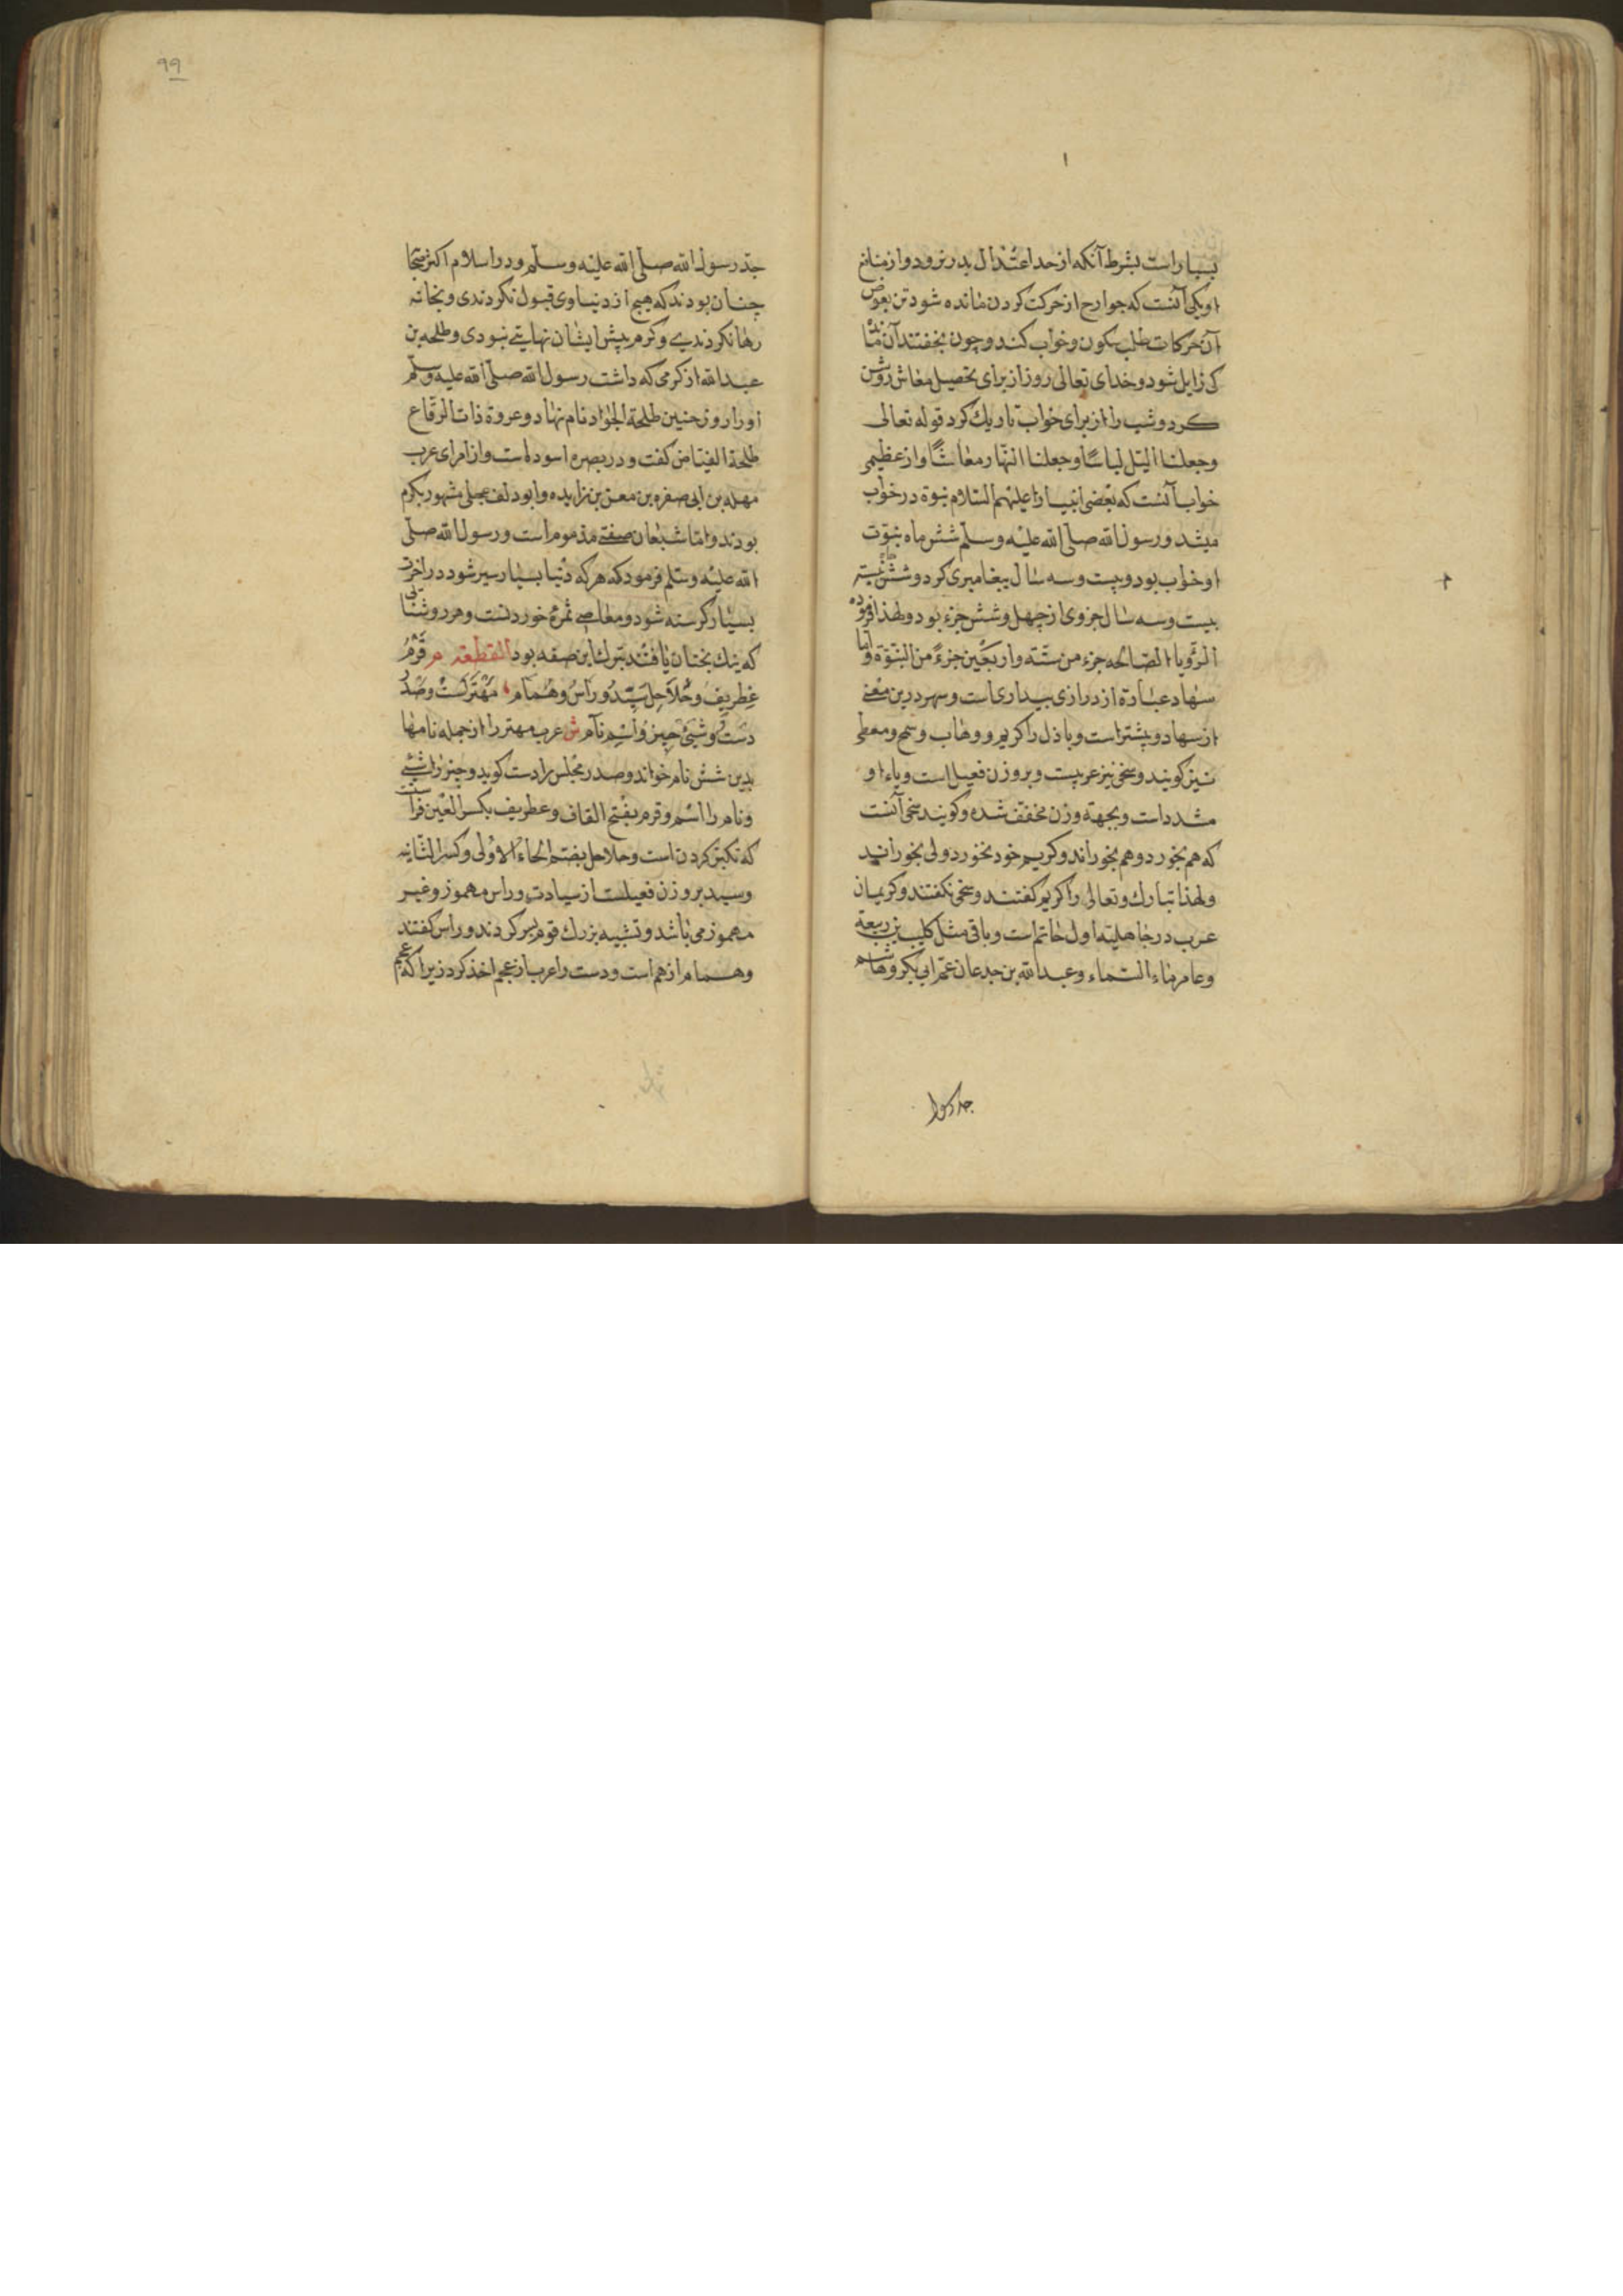 بسیار است بشرط آنکه از حد اعتدال بدر نرود و از منافع
او یکی آنست که جوارح از حرکت کردن مانده شود تن بعوض
آن حرکات طلب سکون و خواب کند و چون بخفتند آن ماندگی
کی زایل شود و خدای تعالی روز از برای تحصیل معاش روشن
کرد و شب را از برای خواب تاریك کرد قوله تعالی
وجعلنا الیّل لباسًا وجعلنا النّهار معاشًا و از عظیمی
خواب آنست که بعضی انبیا را علیهم السّلام نبوة در خواب
میشد و رسول الله صلّی الله علیه وسلّم شش ماه نبوّت
او خواب بود و بیست و سه سال پیغامبری کرد و شش
بیست و سه سال جزوی از چهل و شش جزء بود و لهذا فرموده
الرّویا الصّالحه جزء من ستّة واربعین جزءً من النبوّة وامّا
سهاد عبادة از درازی بیداری است و سهر درین معنی
از سهاد و بیشتر است و باذل را کریم و وهاب و سمح و معطی
نیز کویند و سخی نیز عربیست و بر وزن فعیل است و یاء او
مشدد است و بجهة وزن مخفف شده و کویند سخی آنست
که هم بخورد و هم بخوراند و کریم خود نخورد ولی بخوراند
ولهذا تبارك وتعالی را کریم کفتند و سخی نکفتند و کریمان
عرب در جاهلیته اول حاتم است و باقی مثل کلیب بن ربیعة
وعامر ماء السّماء وعبد الله بن جدعان عمّ ابی بکر وهاشم
جد رسول
۹۹
جدّ رسول الله صلّی الله علیه وسلّم و در اسلام اکثر
چنان بودند که هیچ از دنیاوی قبول نکردندی و بخانه
رها نکردندی و کرم پیش ایشان نهایتی نبودی و طلحه بن
عبد الله از کرمی که داشت رسول الله صلّی الله علیه وسلّم
اورا روز حنین طلحة الجواد نام نهاد و عروة ذات الرّقاع
طلحة الفیّاض کفت و در بصره اسوده است و از امرای عرب
مهلب بن ابی صفره بن معن بن زایده و ابو دلف عجلی مشهور بکرم
بودند و امّا شبعان صفتی مذموم است و رسول الله صلّی
الله علیه وسلّم فرمود که هر که دنیا بسیار سیر شود در آخرت
بسیار کرسنه شود و معاصی ثمرهٔ خوردنست و هر روشنایی
که نیك بختان یافتند بترك این صفه بود القطعه م قَرْمُ
غِطریفُ وحُلاحِل سَیّدُ ورأسُ وهُمام مهترست وصَدْرُ
دَست وشَیئ چیز و اسم نام ش عرب مهتر را از جمله نامها
بدین شش نام خواند و صدر مجلس را دست کوید و چیز را شیئ
و نام را اسم و قرم بفتح القاف و غطریف بکسر الغین
که تکبّر کردن است و حلاحل بضم الحاء الاولی وکسر الثانیه
و سید بر وزن فعیلست از سیادت و راس مهموز و غیر
مهموز می باشد و تشبیه بزرك قوم بسر کردند و راس کفتند
و همام از هم است و دست را عرب از عجم اخذ کرد زیرا که عجم